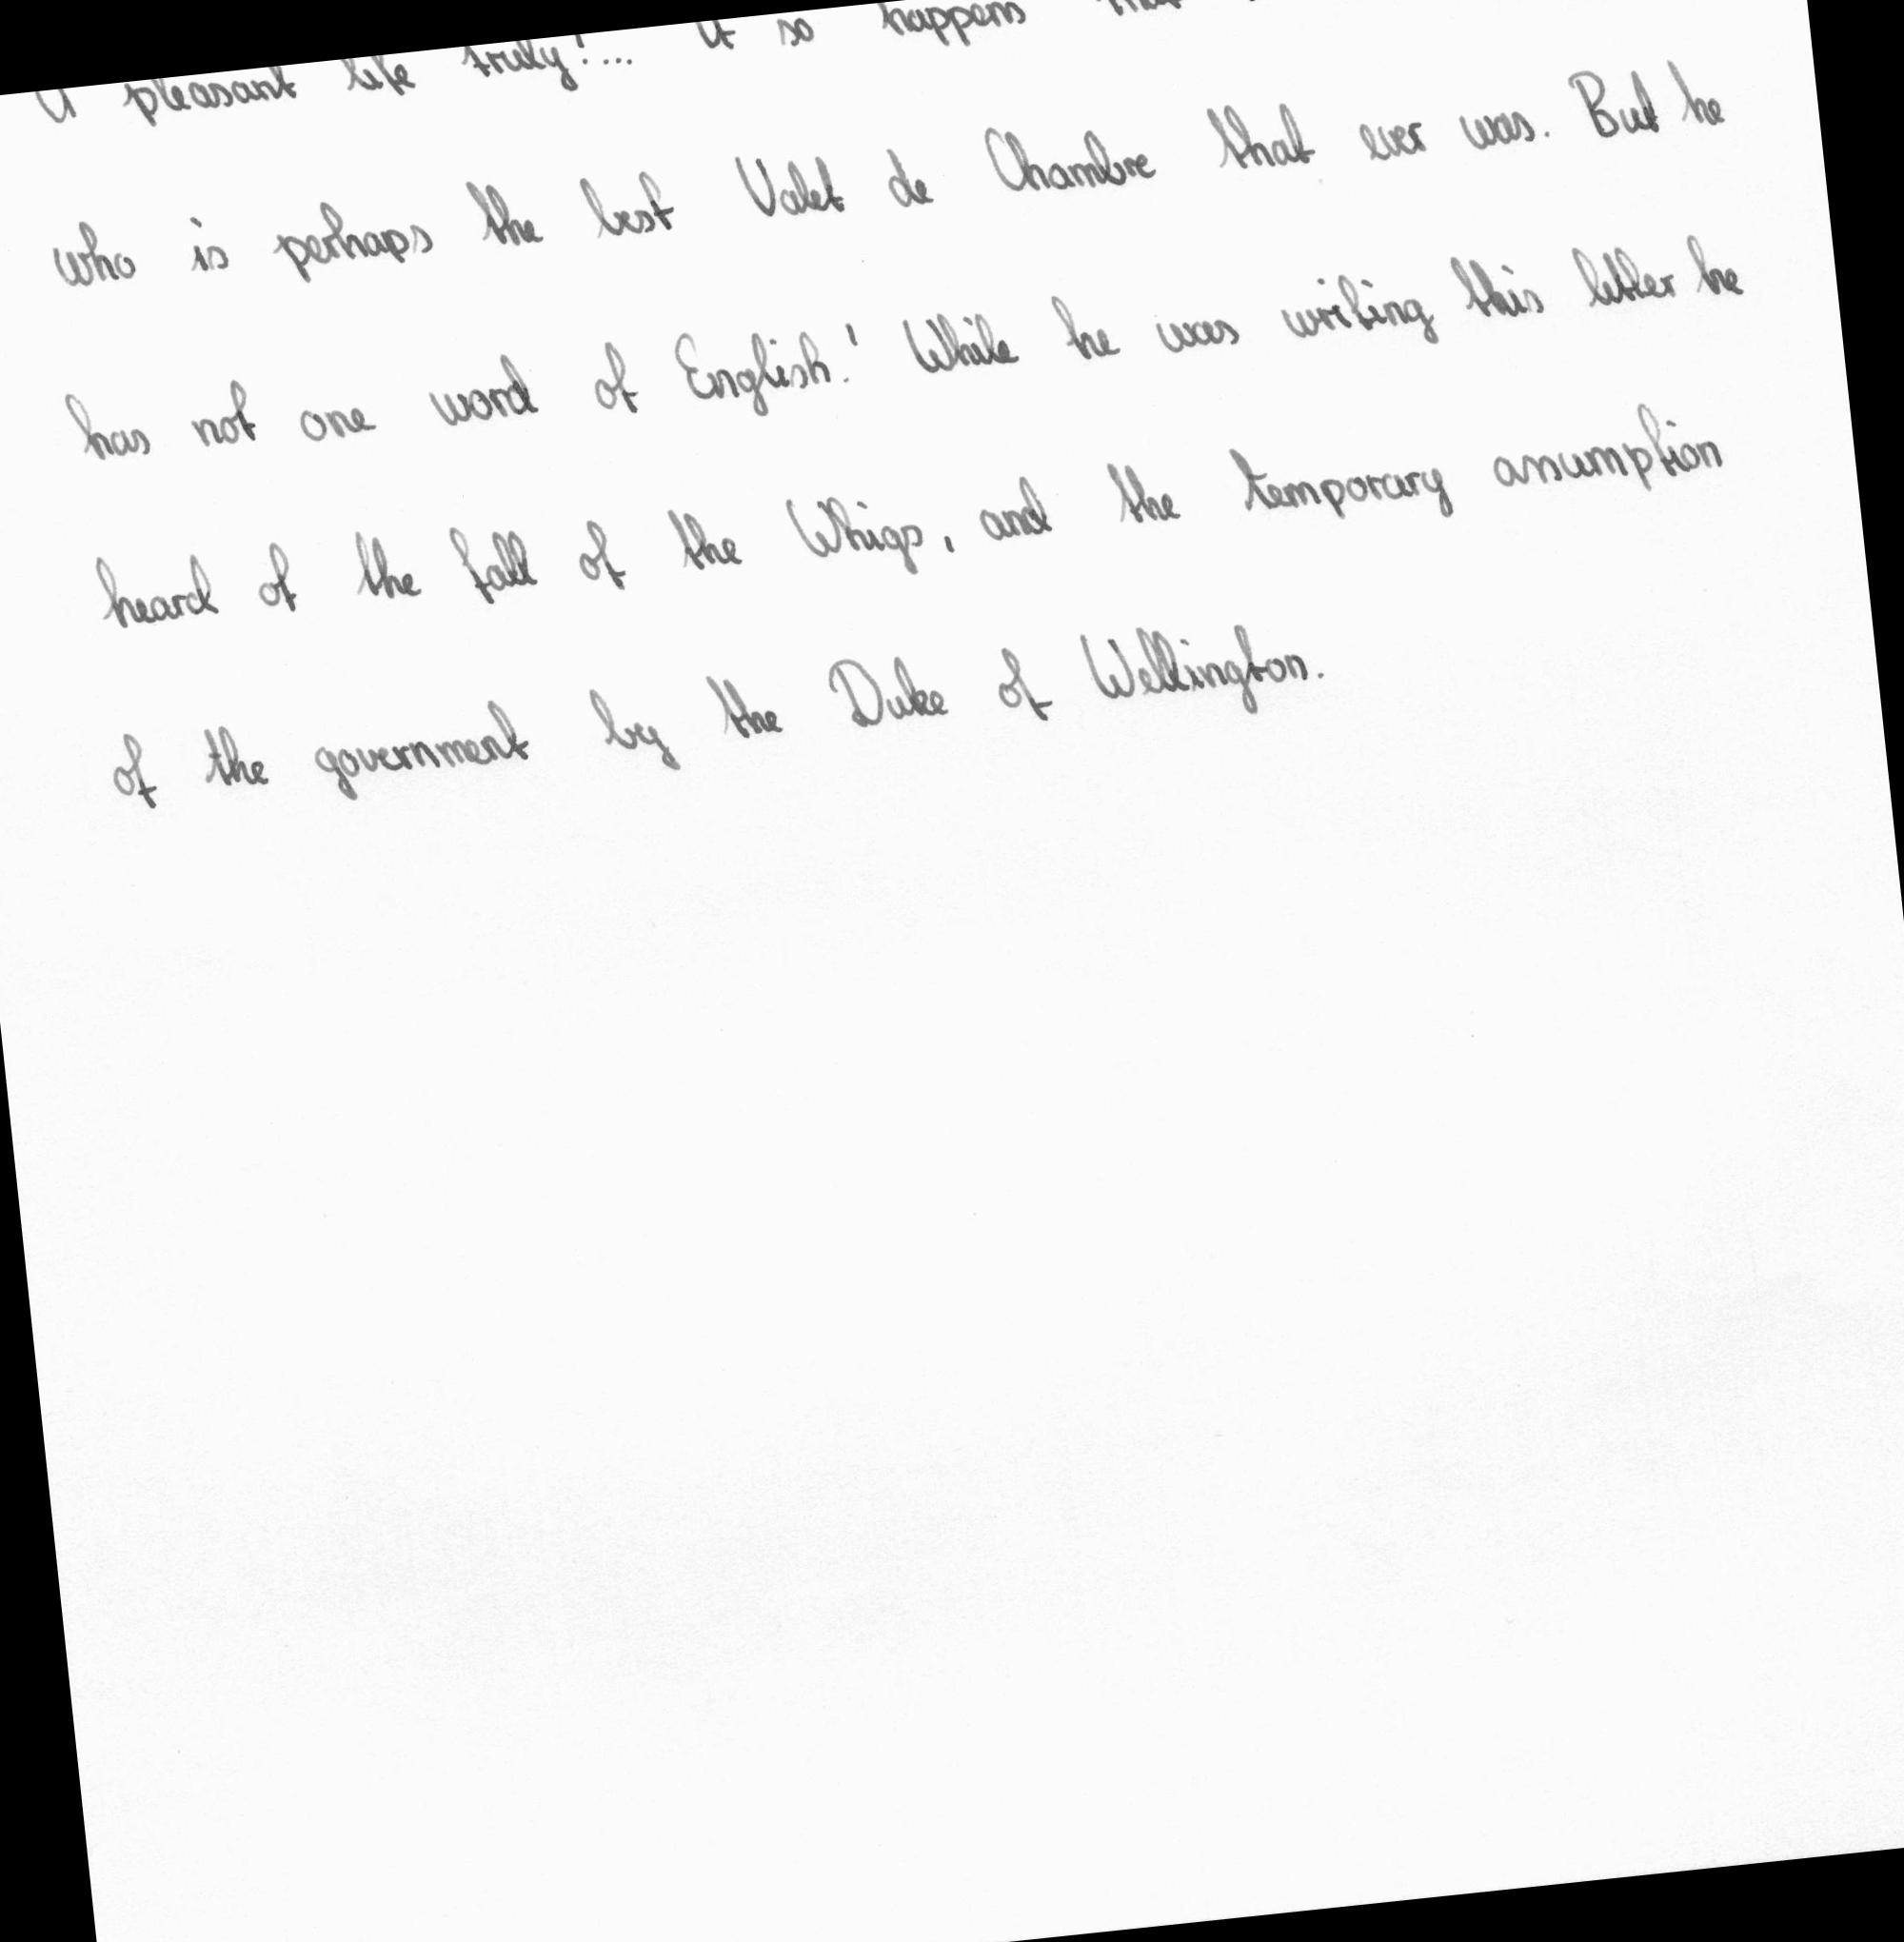 A pleasant life truly!... It so happens that
who is perhaps the best Valet de Chambre that ever was. But he
has not one word of English! While he was writing this letter he
heard of the fall of the Whigs, and the temporary assumption
of the government by the Duke of Wellington.